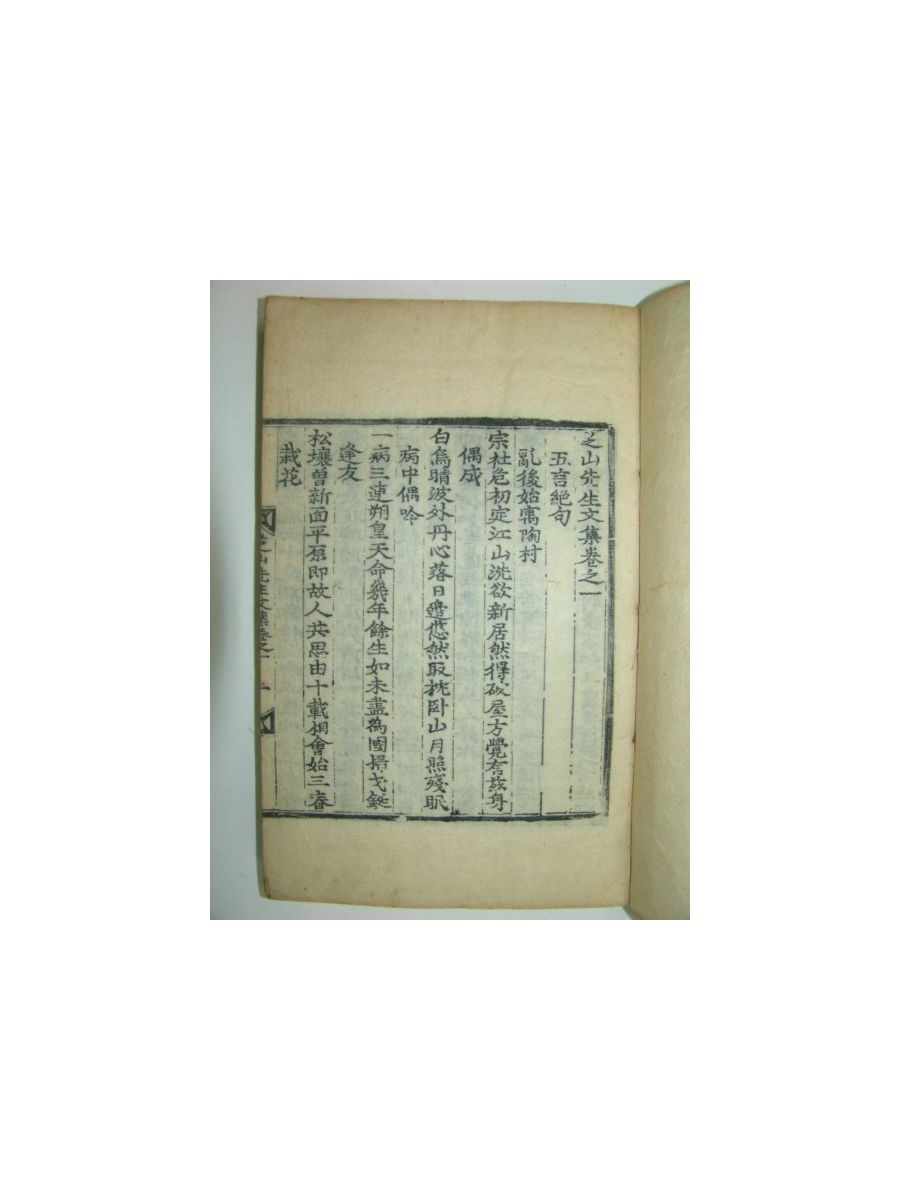 芝山先生文集卷之一
五言絕句
亂後始寓陶村
宗社危初定江山洗欲新居然得破屋方覺有茲身
偶成
白鳥晴波外丹心落日邊悠然取枕卧山月照殘眠
病中偶吟
一病三連朔皇天命幾年餘生如未盡為國掃戈鋋
逢友
松壤曾新面平原即故人共思由十載相會始三春
栽花
芝山先生文集卷之一